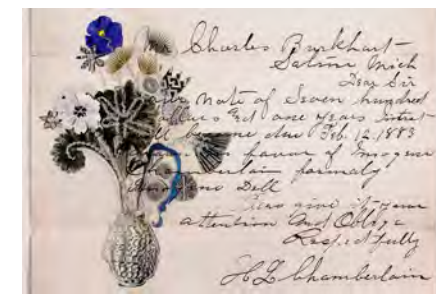 Mr Charles Burkhart
Saline Mich
Dear Sir
Note of Seven hundred
dollars and one years Intrest
become due Feb. 12. 1883
favor of Imogene
Chamberlain formaly
Dell
Please give it your
attention And Oblige
Respectfully
H L Chamberlain